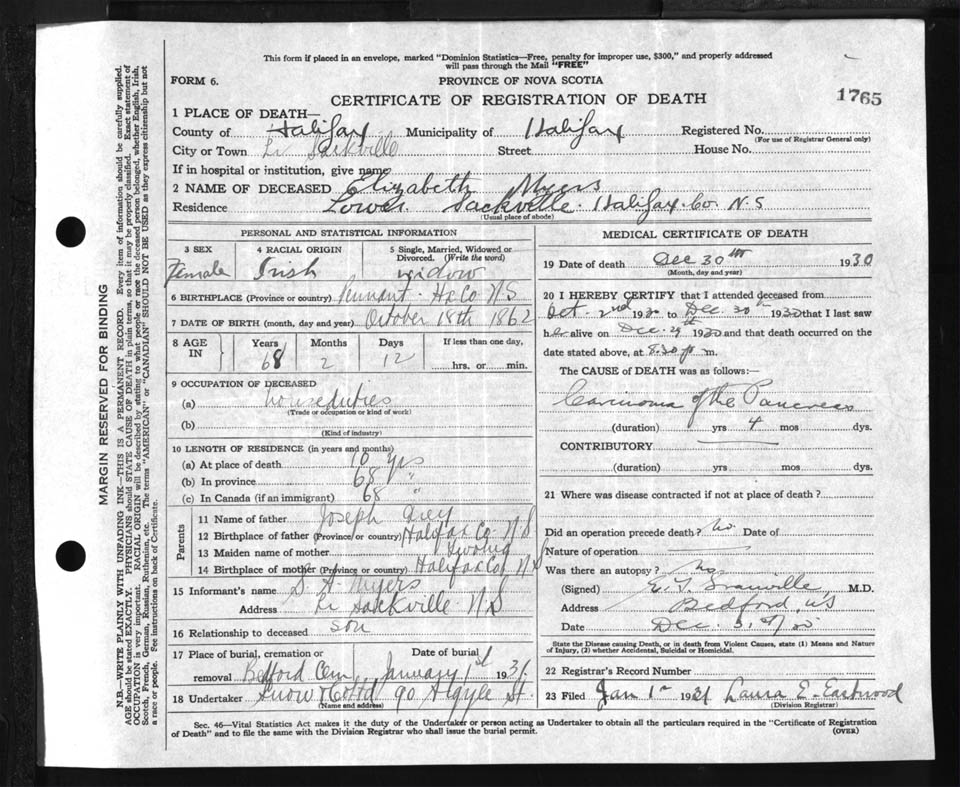 This form if placed in an envelope, marked "Dominion Statistics—Free, penalty for improper use, $300," and properly addressed
will pass through the Mail "FREE"
FORM 6.
PROVINCE OF NOVA SCOTIA
CERTIFICATE OF REGISTRATION OF DEATH
1765
1 PLACE OF DEATH—
County of Halifax Municipality of Halifax Registered No.
(For use of Registrar General only)
City or Town Lr Sackville Street House No.
If in hospital or institution, give name
2 NAME OF DECEASED Elizabeth Myers
Residence Lower Sackville. Halifax. Co. N.S
(Usual place of abode)
PERSONAL AND STATISTICAL INFORMATION
3 SEX 4 RACIAL ORIGIN 5 Single, Married, Widowed or Divorced. (Write the word)
Female Irish widow
6 BIRTHPLACE (Province or country) Pennant. Hx Co N.S
7 DATE OF BIRTH (month, day and year) October 18th 1862
8 AGE IN Years Months Days If less than one day,
68 2 12 hrs. or min.
9 OCCUPATION OF DECEASED
(a) house duties
(Trade or occupation or kind of work)
(b)
(Kind of industry)
10 LENGTH OF RESIDENCE (in years and months)
(a) At place of death 10 yrs
(b) In province 68 "
(c) In Canada (if an immigrant) 68 "
Parents
11 Name of father Joseph Grey
12 Birthplace of father (Province or country) Halifax Co. N.S
13 Maiden name of mother
14 Birthplace of mother (Province or country) Halifax Co N.S
15 Informant's name Myers
Address Lr Sackville N.S
16 Relationship to deceased son
17 Place of burial, cremation or Date of burial
removal Bedford Cem January 1st 1931
18 Undertaker Snow & Co Ltd 90 Argyle St.
(Name and address)
MEDICAL CERTIFICATE OF DEATH
19 Date of death Dec 30th 1930
(Month, day and year)
20 I HEREBY CERTIFY that I attended deceased from
Oct. 2nd 1930 to Dec. 30th 1930 that I last saw
her alive on Dec. 29th 1930 and that death occurred on the
date stated above, at 8.30 p m.
The CAUSE of DEATH was as follows:—
Carcinoma of the Pancreas
(duration) yrs 4 mos dys.
CONTRIBUTORY
(duration) yrs mos dys.
21 Where was disease contracted if not at place of death?
Did an operation precede death? No Date of
Nature of operation
Was there an autopsy? No
(Signed) E. Granville M.D.
Address Bedford, NS
Date Dec. 31st
State the Disease causing Death, or in death from Violent Causes, state (1) Means and Nature
of Injury, (2) whether Accidental, Suicidal or Homicidal.
22 Registrar's Record Number
23 Filed Jan 1st 1931 Laura E. Eastwood
(Division Registrar)
Sec. 46—Vital Statistics Act makes it the duty of the Undertaker or person acting as Undertaker to obtain all the particulars required in the "Certificate of Registration
of Death" and to file the same with the Division Registrar who shall issue the burial permit.
(OVER)
MARGIN RESERVED FOR BINDING
N.B.—WRITE PLAINLY WITH UNFADING INK—THIS IS A PERMANENT RECORD. Every item of information should be carefully supplied.
AGE should be stated EXACTLY. PHYSICIANS should STATE CAUSE OF DEATH in plain terms, so that it may be properly classified. Exact statement of
OCCUPATION is very important. RACIAL ORIGIN will be described by stating to what people or race the deceased person belonged, whether English, Irish,
Scotch, French, German, Russian, Ruthenian, etc. The terms "AMERICAN" or "CANADIAN" SHOULD NOT BE USED as they express citizenship but not
a race or people. See instructions on back of Certificate.